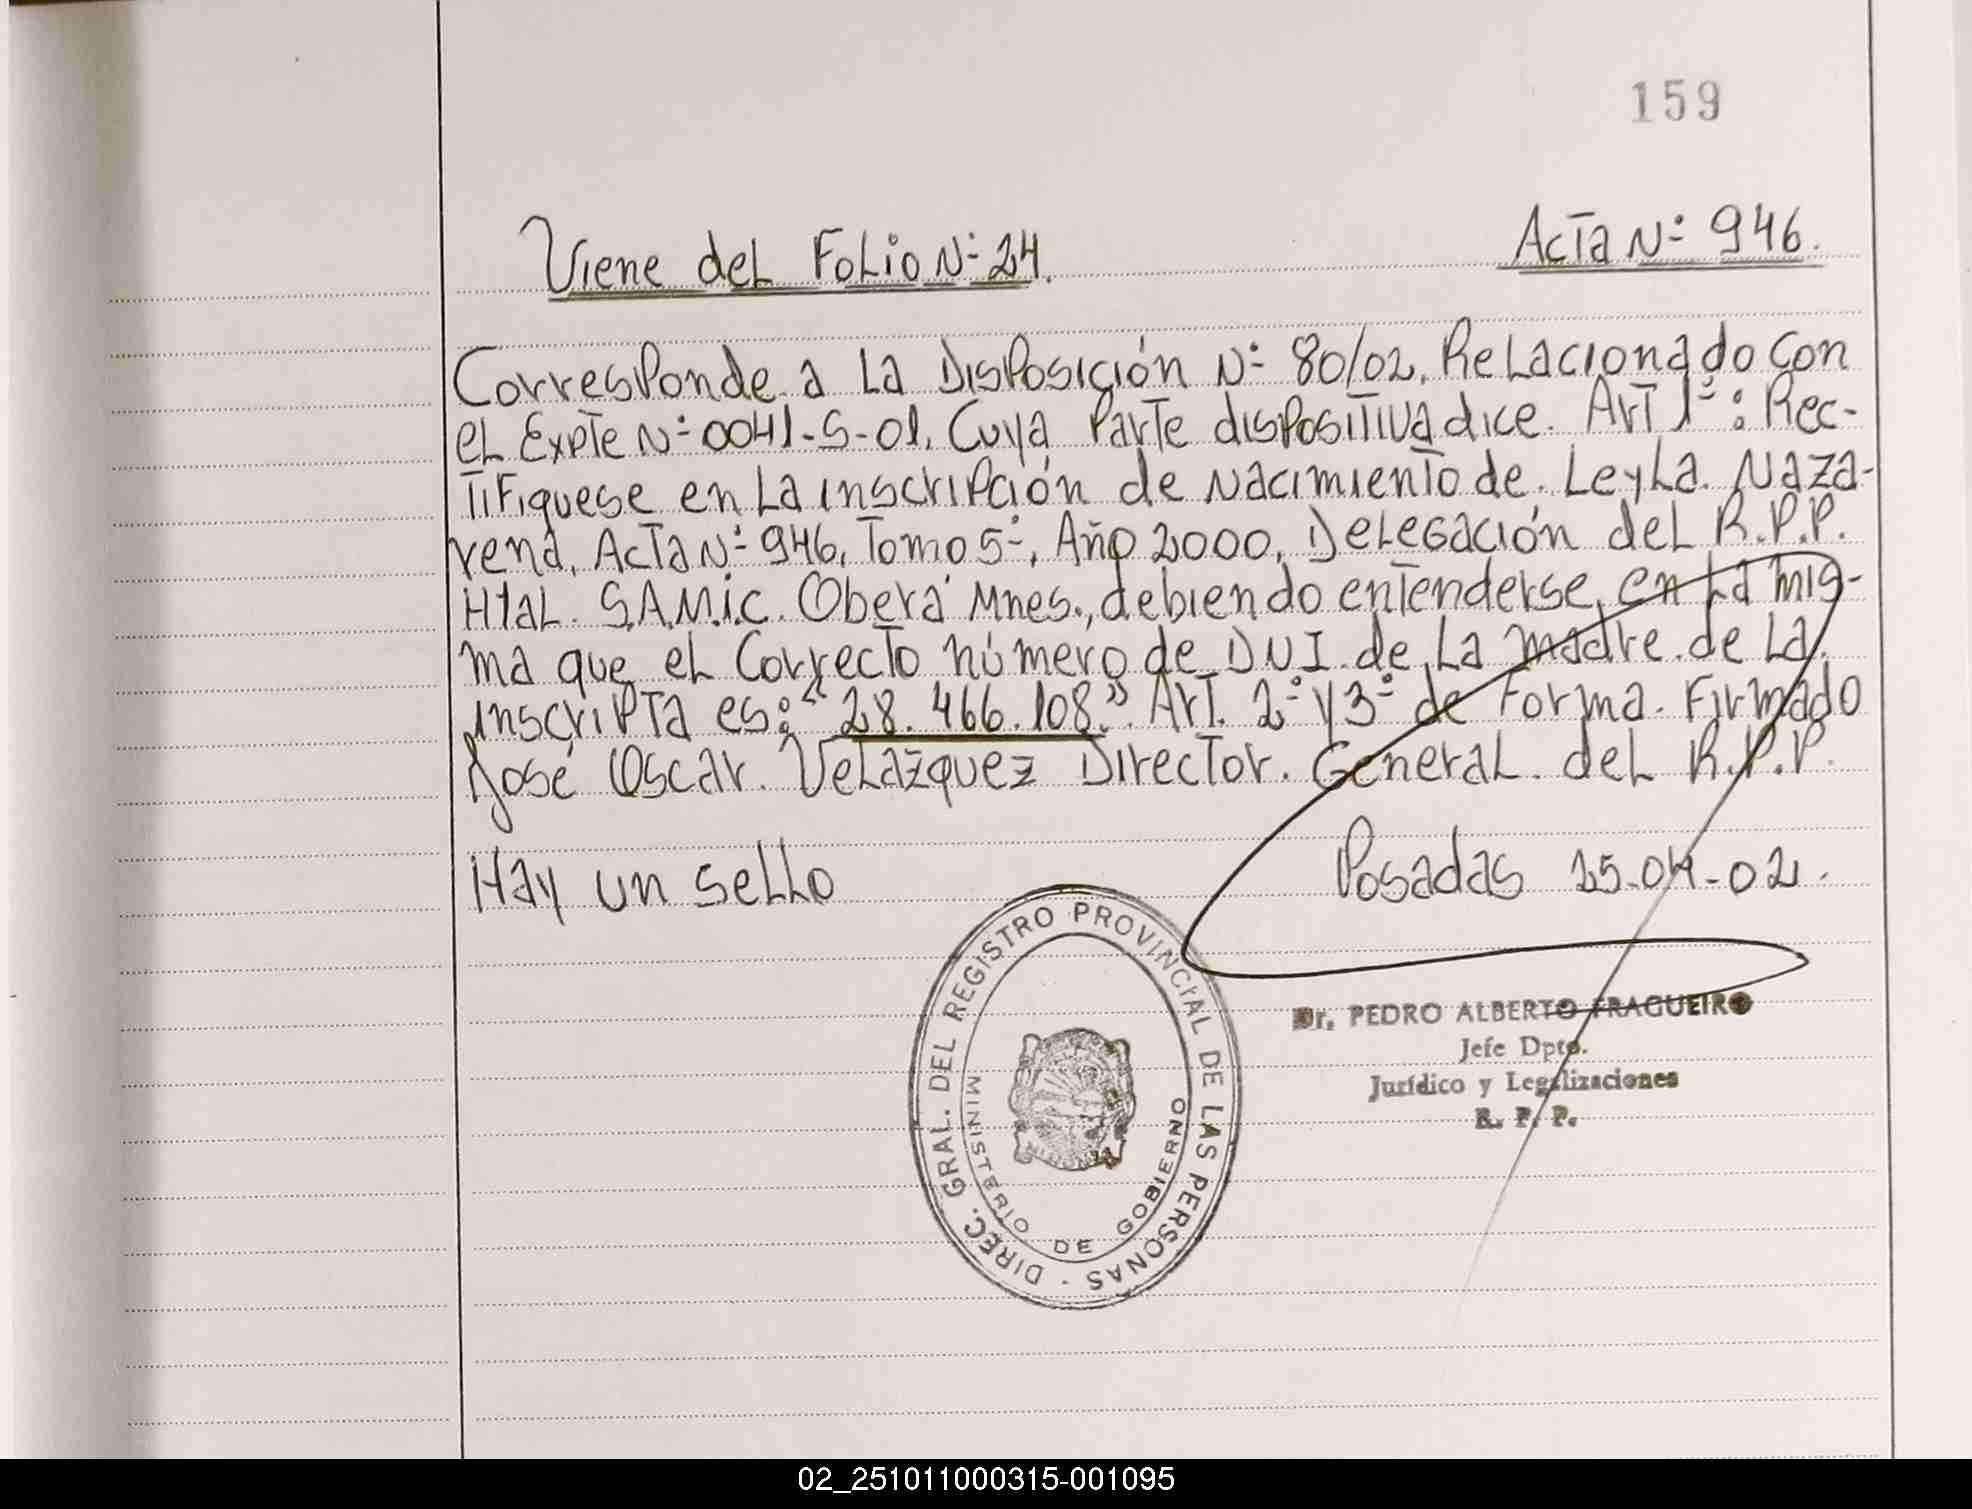 159
Viene del Folio N° 24.
Acta N° 946.
Corresponde a La Disposición N° 80/02. Relacionado con
el Expte N° 0041-S-01. Cuya Parte dispositiva dice. Art 1°: Rec-
tifiquese en La inscripción de Nacimiento de. Leyla. Naza-
rena, Acta N° 946, Tomo 5°, Año 2000, Delegación del R.P.P.
Htal. S.A.M.i.C. Oberá Mnes., debiendo entenderse, en La mis-
ma que el Correcto número de DNI. de La madre. de La
inscripta es: "28.466.108". Art. 2° y 3° de Forma. Firmado
José Oscar. Velazquez Director. General. del R.P.P.
Hay un sello
Posadas 25-04-02.
DIREC. GRAL. DEL REGISTRO PROVINCIAL DE LAS PERSONAS -
MINISTERIO DE GOBIERNO
Dr. PEDRO ALBERTO FRAGUEIRO
Jefe Dpto.
Jurídico y Legalizaciones
R. P. P.
02_251011000315-001095